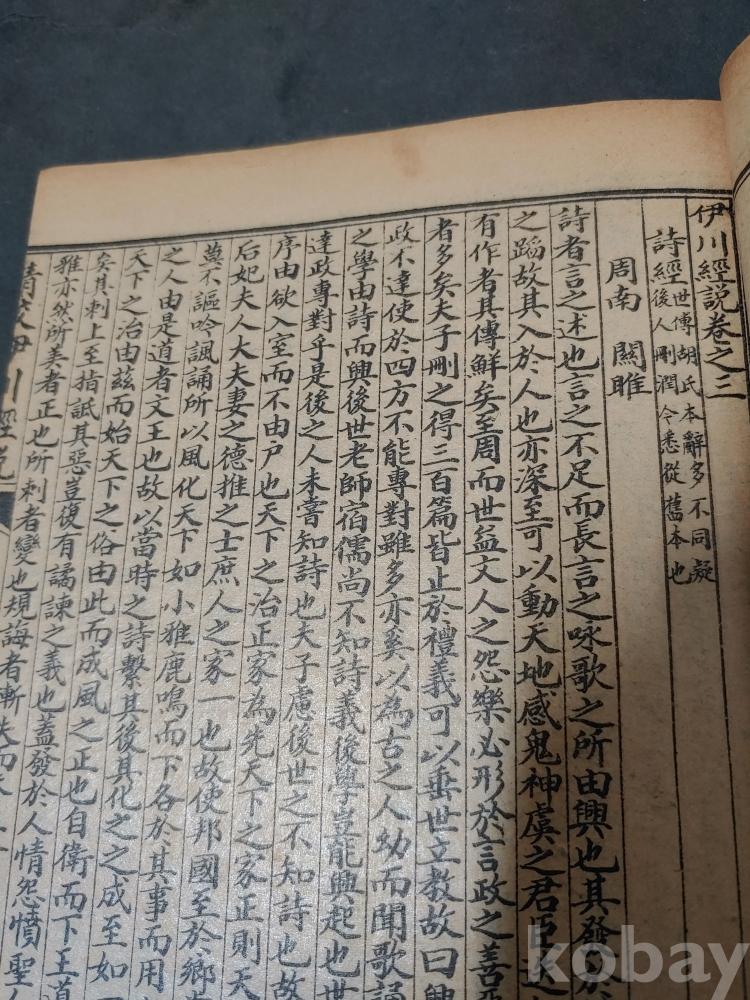 伊川經說卷之三
詩經世傳胡氏本辭多不同疑
後人刪潤今悉從舊本也
周南 關雎
詩者言之述也言之不足而長言之咏歌之所由興也其發於
之蹈故其入於人也亦深至可以動天地感鬼神虞之君臣迭
有作者其傳鮮矣至周而世益文人之怨樂必形於言政之善惡
者多矣夫子刪之得三百篇皆止於禮義可以垂世立教故曰興
政不達使於四方不能專對雖多亦奚以為古之人幼而聞歌誦
之學由詩而興後世老師宿儒尚不知詩義後學豈能興起也世
達政專對乎是後之人未嘗知詩也夫子慮後世之不知詩也故
序由欲入室而不由户也天下之治正家為先天下之家正則天
后妃夫人大夫妻之德推之士庶人之家一也故使邦國至於鄉
莫不謳吟諷誦所以風化天下如小雅鹿鳴而下各於其事而用
之人由是道者文王也故以當時之詩繫其後其化之之成至如
天下之治由茲而始天下之俗由此而成風之正也自衛而下王道
矣其刺上至指詆其惡豈復有譎諫之義也蓋發於人情怨憤聖人
雅亦然所美者正也所刺者變也規誨者漸失而
伊川經說
kobay